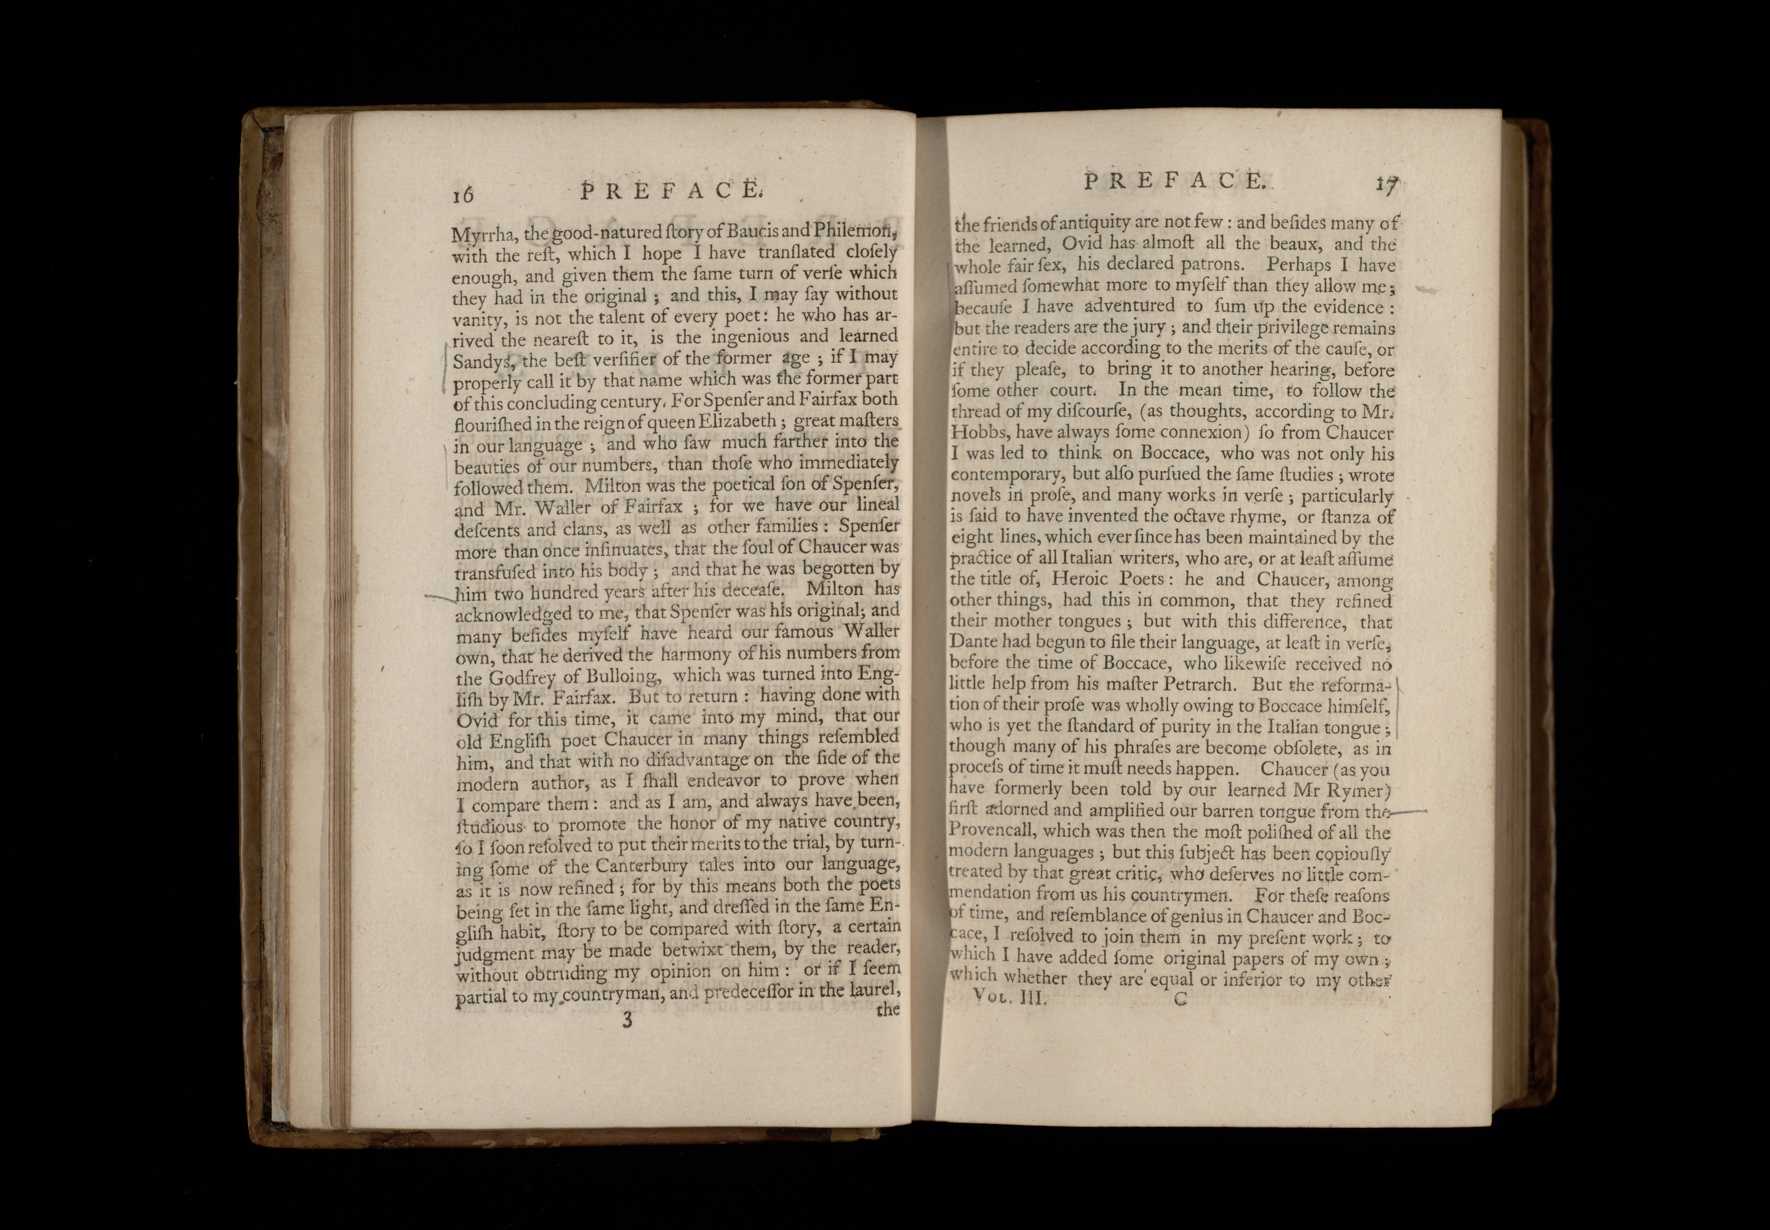 16 PREFACE.
Myrrha, the good-natured ſtory of Baucis and Philemon,
with the reſt, which I hope I have tranſlated cloſely
enough, and given them the ſame turn of verſe which
they had in the original ; and this, I may ſay without
vanity, is not the talent of every poet: he who has ar-
rived the neareſt to it, is the ingenious and learned
Sandys, the beſt verſifier of the former age ; if I may
properly call it by that name which was the former part
of this concluding century. For Spenſer and Fairfax both
flouriſhed in the reign of queen Elizabeth ; great maſters
in our language ; and who ſaw much farther into the
beauties of our numbers, than thoſe who immediately
followed them. Milton was the poetical ſon of Spenſer,
and Mr. Waller of Fairfax ; for we have our lineal
deſcents and clans, as well as other families : Spenſer
more than once inſinuates, that the ſoul of Chaucer was
transfuſed into his body ; and that he was begotten by
him two hundred years after his deceaſe. Milton has
acknowledged to me, that Spenſer was his original; and
many beſides myſelf have heard our famous Waller
own, that he derived the harmony of his numbers from
the Godfrey of Bulloing, which was turned into Eng-
liſh by Mr. Fairfax. But to return : having done with
Ovid for this time, it came into my mind, that our
old Engliſh poet Chaucer in many things reſembled
him, and that with no diſadvantage on the ſide of the
modern author, as I ſhall endeavor to prove when
I compare them : and as I am, and always have been,
ſtudious to promote the honor of my native country,
ſo I ſoon reſolved to put their merits to the trial, by turn-
ing ſome of the Canterbury tales into our language,
as it is now refined ; for by this means both the poets
being ſet in the ſame light, and dreſſed in the ſame En-
gliſh habit, ſtory to be compared with ſtory, a certain
judgment may be made betwixt them, by the reader,
without obtruding my opinion on him : or if I ſeem
partial to my countryman, and predeceſſor in the laurel,
3 the
PREFACE. 17
the friends of antiquity are not few : and beſides many of
the learned, Ovid has almoſt all the beaux, and the
whole fair ſex, his declared patrons. Perhaps I have
aſſumed ſomewhat more to myſelf than they allow me ;
becauſe I have adventured to ſum up the evidence :
but the readers are the jury ; and their privilege remains
entire to decide according to the merits of the cauſe, or
if they pleaſe, to bring it to another hearing, before
ſome other court. In the mean time, to follow the
thread of my diſcourſe, (as thoughts, according to Mr.
Hobbs, have always ſome connexion) ſo from Chaucer
I was led to think on Boccace, who was not only his
contemporary, but alſo purſued the ſame ſtudies ; wrote
novels in proſe, and many works in verſe ; particularly
is ſaid to have invented the octave rhyme, or ſtanza of
eight lines, which ever ſince has been maintained by the
practice of all Italian writers, who are, or at leaſt aſſume
the title of, Heroic Poets : he and Chaucer, among
other things, had this in common, that they refined
their mother tongues ; but with this difference, that
Dante had begun to file their language, at leaſt in verſe,
before the time of Boccace, who likewiſe received no
little help from his maſter Petrarch. But the reforma-
tion of their proſe was wholly owing to Boccace himſelf,
who is yet the ſtandard of purity in the Italian tongue ;
though many of his phraſes are become obſolete, as in
proceſs of time it muſt needs happen. Chaucer (as you
have formerly been told by our learned Mr Rymer)
firſt adorned and amplified our barren tongue from the
Provencall, which was then the moſt poliſhed of all the
modern languages ; but this ſubject has been copiouſly
treated by that great critic, who deſerves no little com-
mendation from us his countrymen. For theſe reaſons
of time, and reſemblance of genius in Chaucer and Boc-
cace, I reſolved to join them in my preſent work ; to
which I have added ſome original papers of my own ;
which whether they are equal or inferior to my other
VOL. III. C